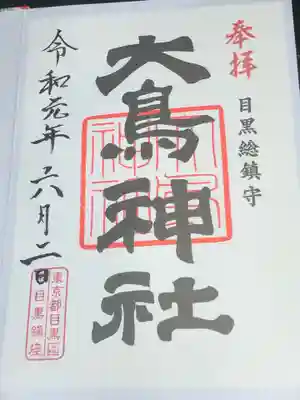 奉拝
目黒総鎮守
大鳥神社
令和元年六月二日
東京都目黒区
目黒鎮座